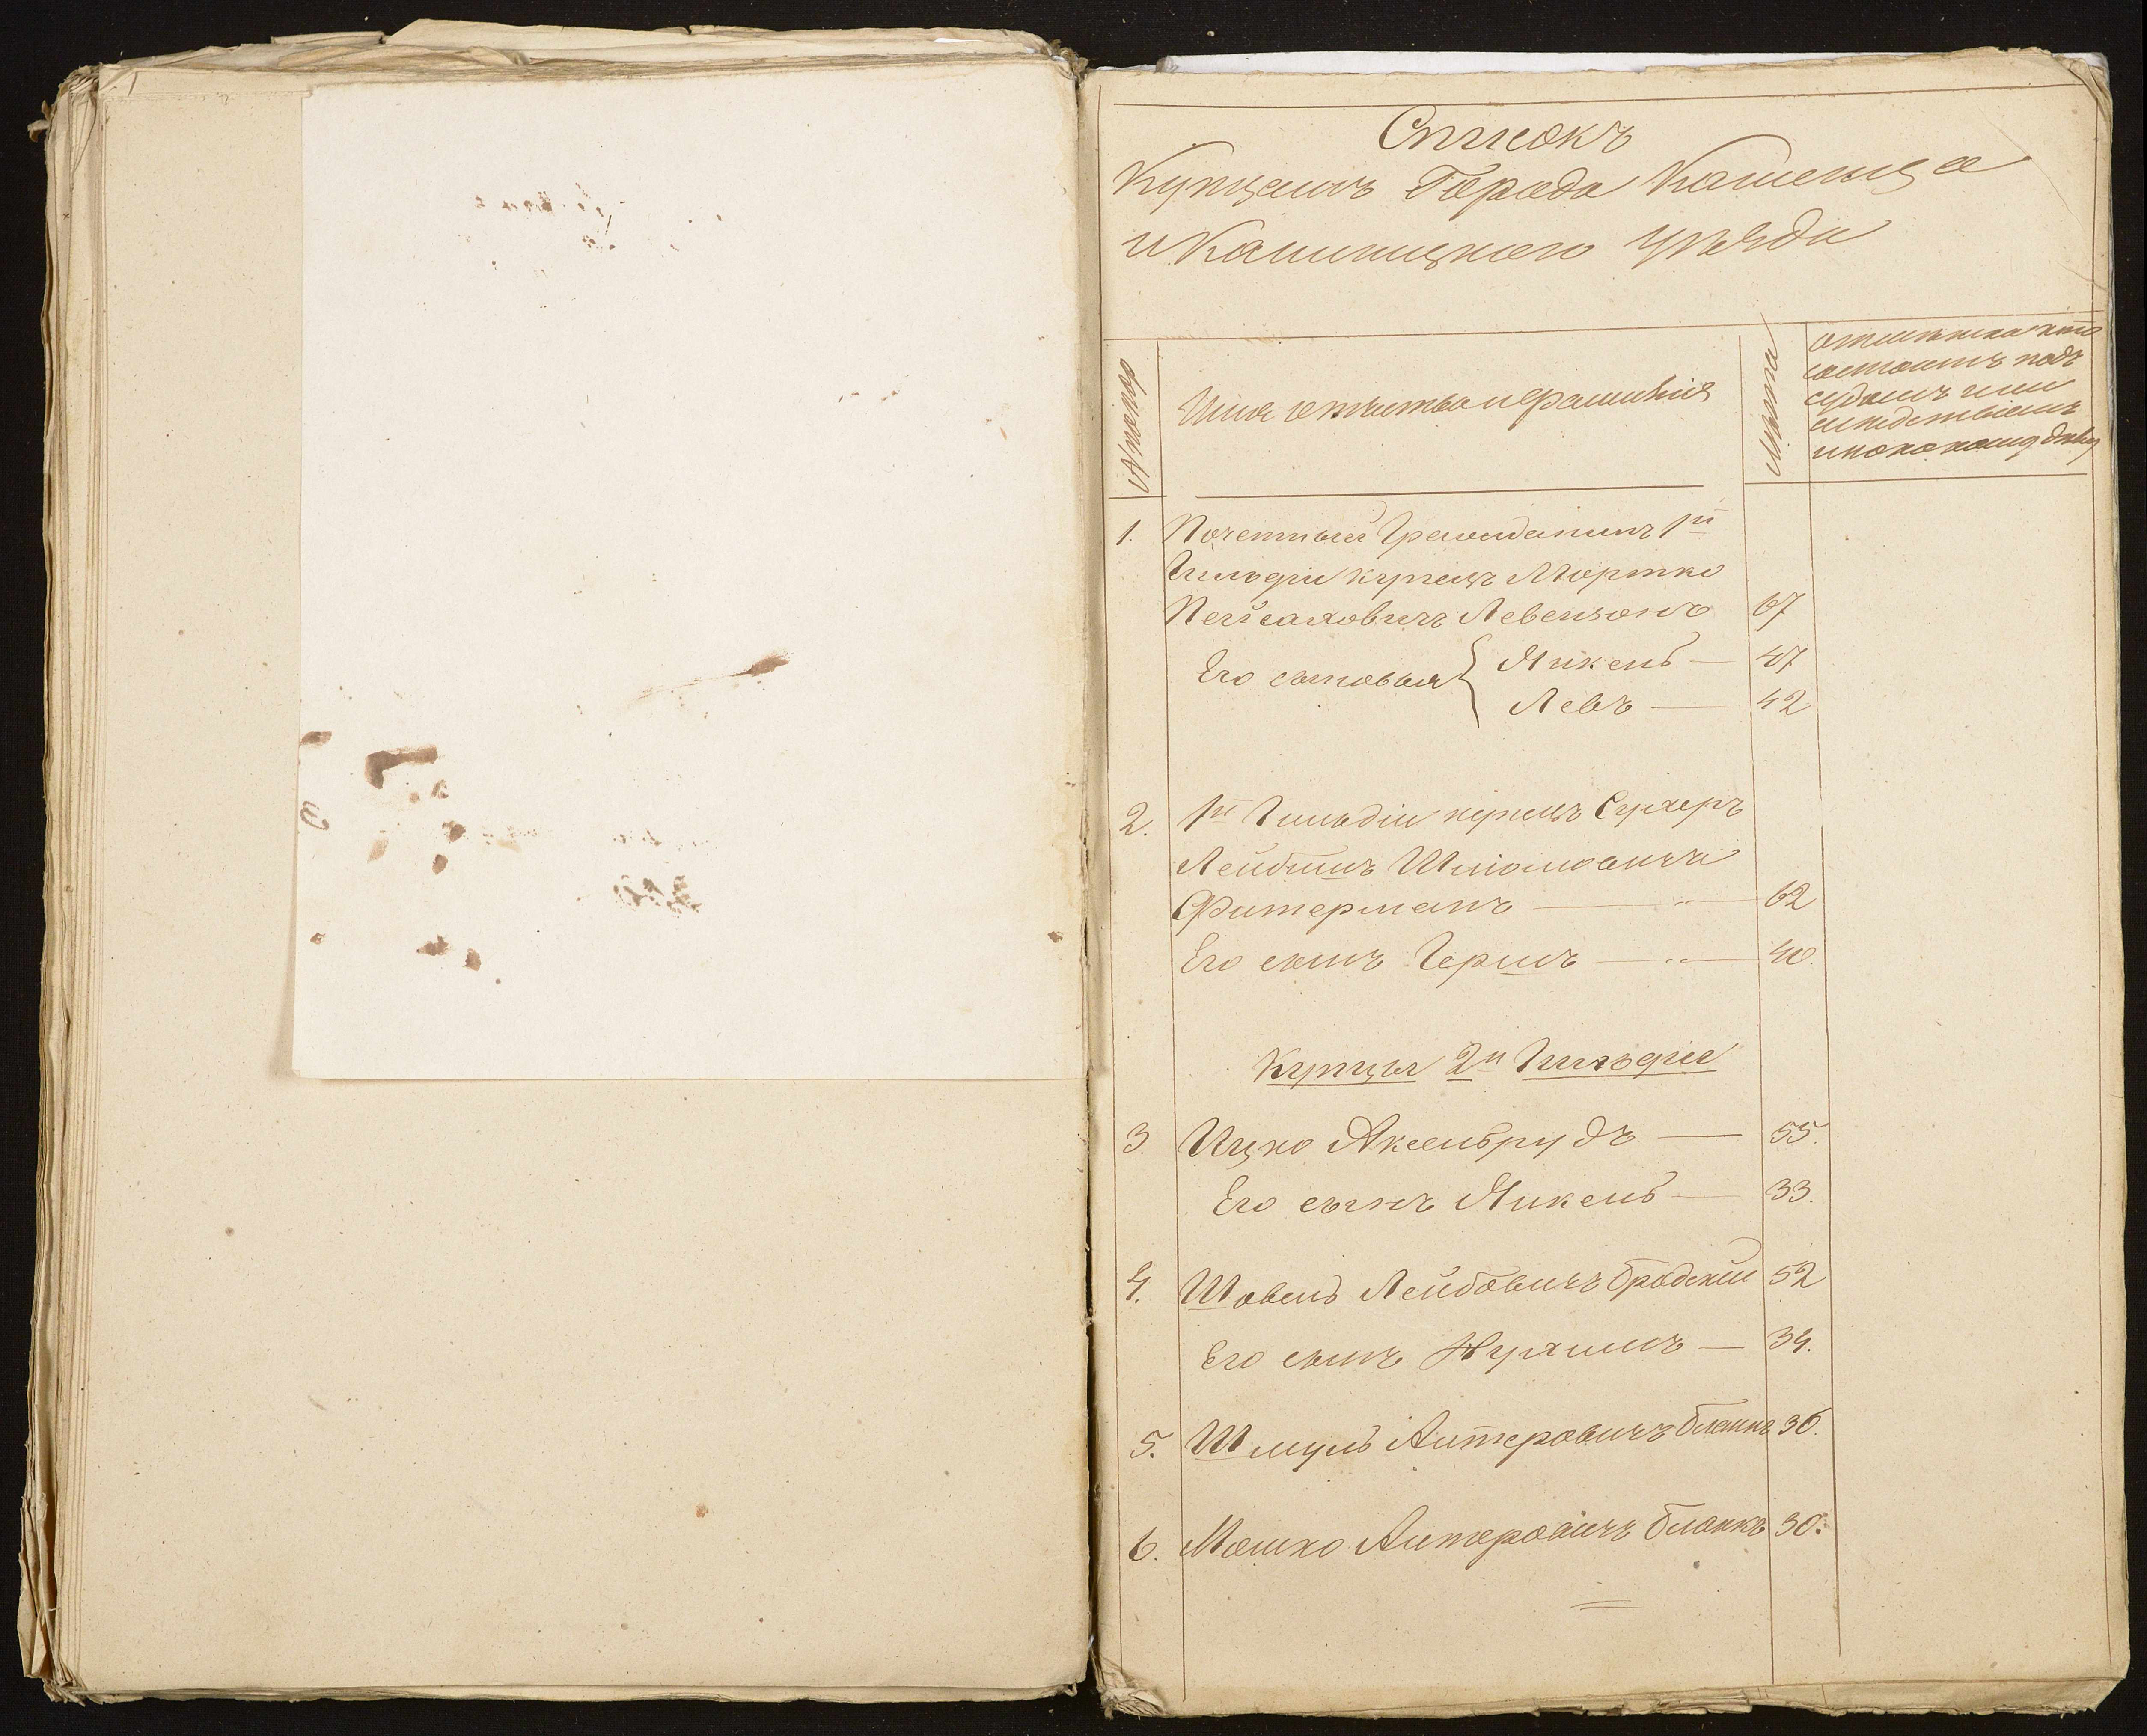 Списокъ
Купцамъ Города Каменца
и Каменецкаго Уѣзда
№ по пор
Имя отчество и фамилія
Лѣта
отмѣтка кто
состоитъ подъ
судомъ или
слѣдствіемъ
и по какому дѣлу
1. Почетный Гражданинъ 1й
Гильдіи купецъ Мортко
Пейсаховичъ Левензонъ 67
Его сыновья { Янкель — 47
Левъ — 42
2. 1й Гильдіи купецъ Сухеръ
Лейбишъ Шліомовичъ
Фитерманъ — " — 62
Его сынъ Гершъ — " — 40.
Купцы 2й Гильдіи
3. Ицко Аксельрудъ — 55.
Его сынъ Янкель — 33.
4. Шовель Лейбовичъ Бродскій 52
Его сынъ Нухимъ — 34.
5. Шмуль Алтеровичъ Бланкъ 36.
6. Мошко Алтеровичъ Бланкъ 30.